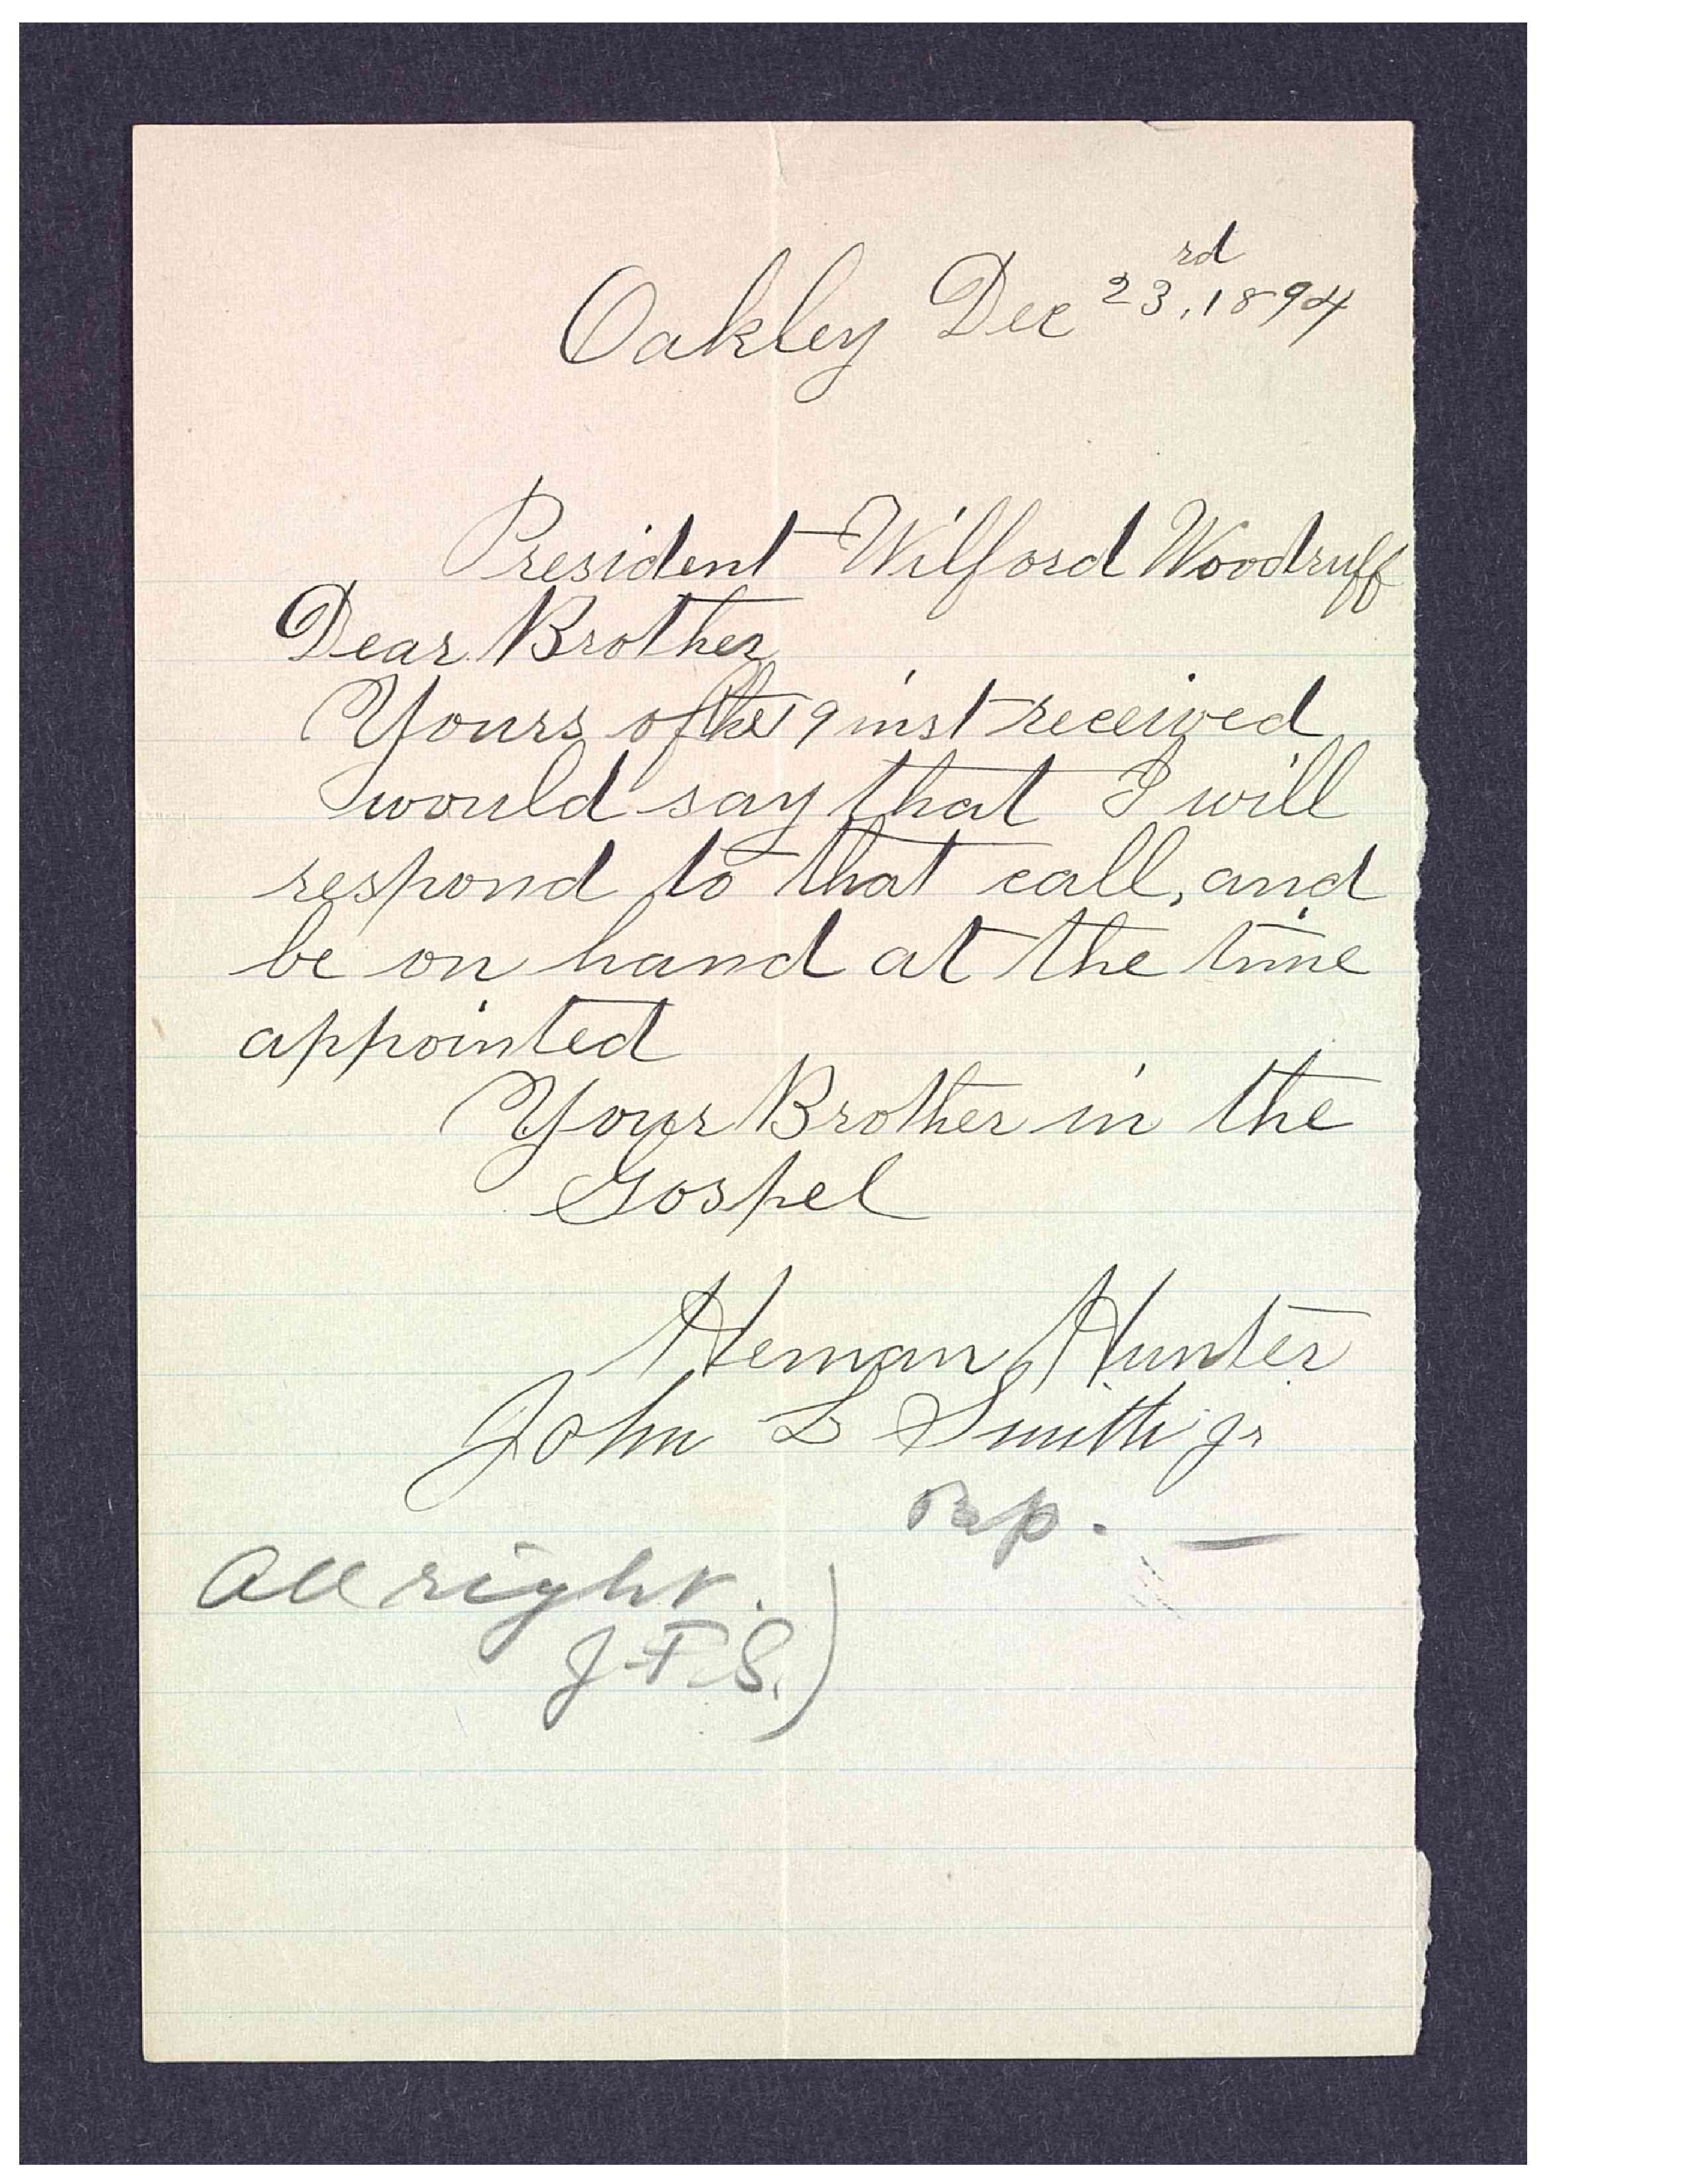 Oakley Dec 23rd, 1894
President Wilford Woodruff
Dear Brother
Yours of the 19 inst received
would say that I will
respond to that call, and
be on hand at the time
appointed
Your Brother in the
Gospel
Heman Hunter
John L Smith jr
Bp.
All right.
J. F. S.)